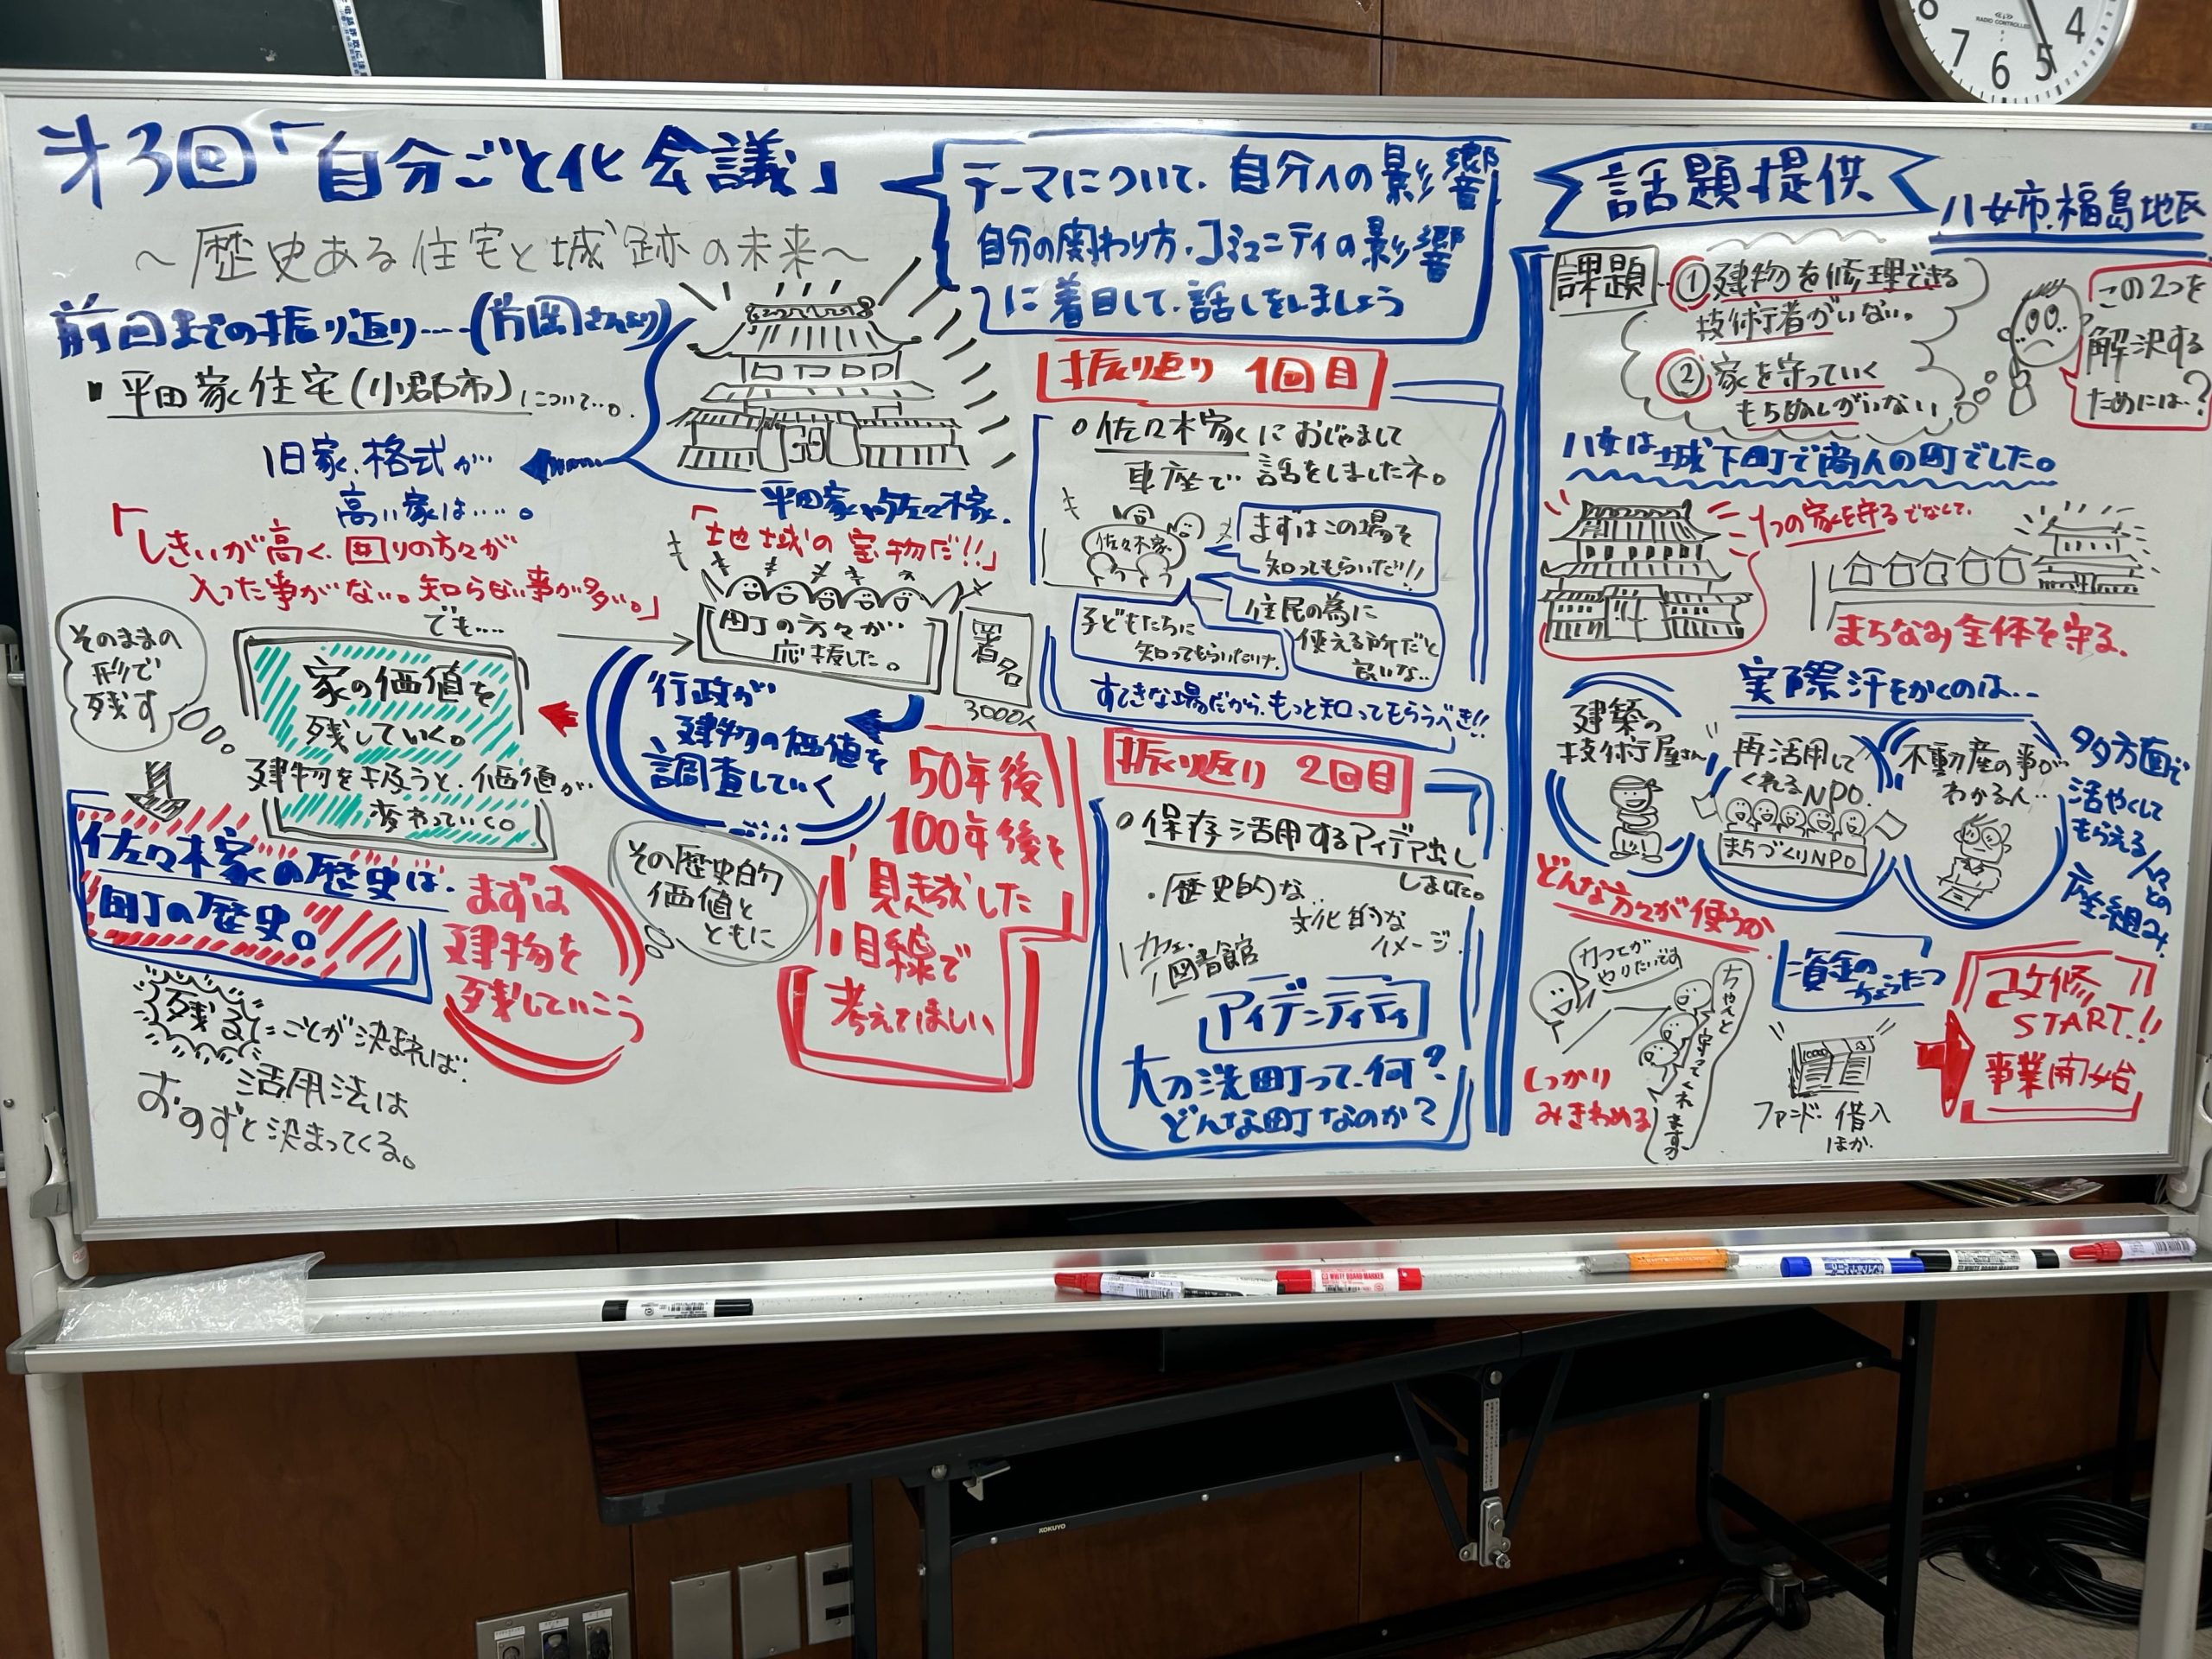 第3回「自分ごと化会議」
～歴史ある住宅と城跡の未来～
テーマについて、自分への影響
自分の関わり方、コミュニティの影響
に着目して、話しをしましょう
前回までの振り返り……(片岡さんより)
・平田家住宅(小郡市)について…。
旧家、格式が…
高い家は……。
「しきいが高く、回りの方々が
入った事がない。知らない事が多い。」
でも……
平田家や佐々木家。
「地域の宝物だ!!」
町の方々が
応援した。
署名
3000人
行政が
建物の価値を
調査していく
そのままの
形で
残す
家の価値を
残していく。
建物を扱うと、価値が
変わっていく。
佐々木家の歴史は、
町の歴史。
まずは
建物を
残していこう
その歴史的
価値と
ともに
50年後
100年後を
見越した
目線で
考えてほしい
残ることが決まれば…
活用法は
おのずと決まってくる。
振り返り 1回目
○佐々木家におじゃまして
車座で…話をしましたネ。
佐々木家
まずはこの場を
知ってもらいたい!!
子どもたちに
知ってもらいたいナ。
住民の為に
使える所だと
良いな…
すてきな場だから、もっと知ってもらうべき!!
振り返り 2回目
○保存活用するアイデア出し
しました。
・歴史的な…
文化的な
イメージ
カフェ
図書館
アイデンティティ
大刀洗町って、何?
どんな町なのか?
話題提供
八女市、福島地区
課題
①建物を修理できる
技術者がいない。
②家を守っていく
もちぬしがいない
この2つを
解決する
ためには…?
八女は城下町で商人の町でした。
1つの家を守るでなくて、
まちなみ全体を守る。
実際汗をかくのは…
建築の
技術屋さん
再活用して
くれるNPO.
まちづくりNPO
不動産の事が
わかる人…
多方面で
活やくして
もらえる人々
との
座組み
どんな方々が使うか
カフェが
やりたいです
ちゃんと守ってくれますか
しっかり
みきわめる
資金の
ちょうたつ
ファンド・借入
ほか
改修
START!!
事業開始
RADIO CONTROLLED
8 7 6 5 4
WHITE BOARD MARKER
KOKUYO